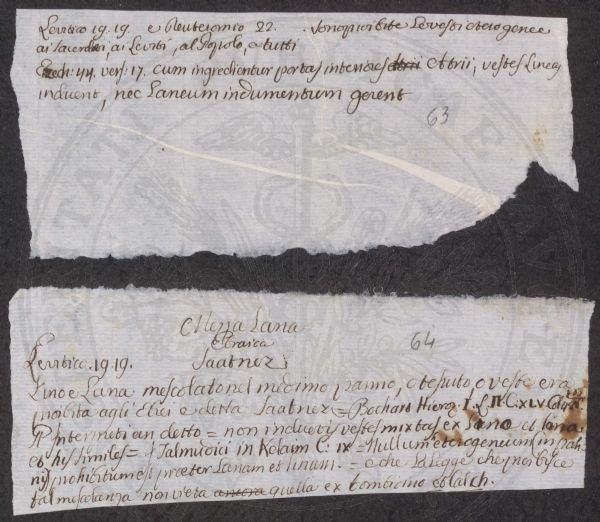 Levitico 19. 19. e Deuteronomio 22. Sono proibite le vesti eterogenee
ai sacerdoti, ai Leviti, al Popolo, a tutti
Ezech: 44. vers: 17. cum ingredientur portas interiores atrii et trii, vestes Lineas
induent, nec Laneum indumentum gerent
63
Mezza Lana
Ebraica
Saatnez
64
Levitico. 19. 19.
Lino e Lana mescolato nel medesimo panno, o tessuto o veste era
proibita agli Ebrei e detta Saatnez = Bochart Hieroz. I. L. II. C. XLV
Interpreti an detto = non indueris vestes mixtas ex Lana et lana
et his similes = I Talmudici in Kelaim C: IX = Nullum eterogeneum in
prohibitum est praeter Lanam et linum. = e che la Legge che proibisce
tal mescolanza non vieta ancora quella ex